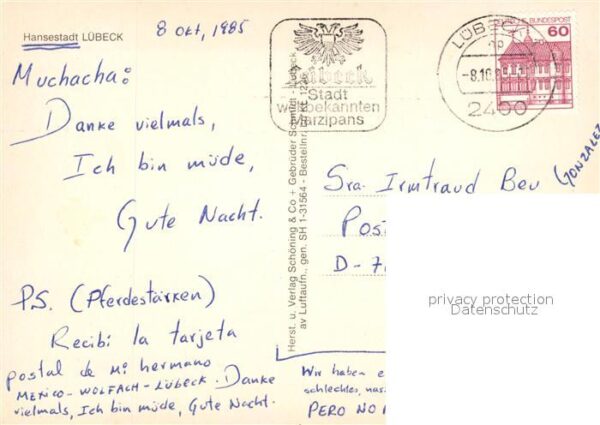 Hansestadt LÜBECK
8 Okt, 1985
Muchacha:
Danke vielmals,
Ich bin müde,
Gute Nacht.
P.S. (Pferdestärken)
Recibí la tarjeta
postal de Mi hermano
MEXICO - WOLFACH - LÜBECK. Danke
vielmals, Ich bin müde, Gute Nacht.
Lübeck
Stadt
weltbekannten
Marzipans
LÜBECK
-8.10.8
2400
BUNDESPOST
60
Herst. u. Verlag Schöning & Co + Gebrüder Schmidt, Lübeck
av Luftaufn., gen. SH 1-31564 - Bestellnr.
Sra. Irmtraud Beu
GONZALEZ
Post
D-7
privacy protection
Datenschutz
Wir haben e
schlechtes, nas
PERO NO